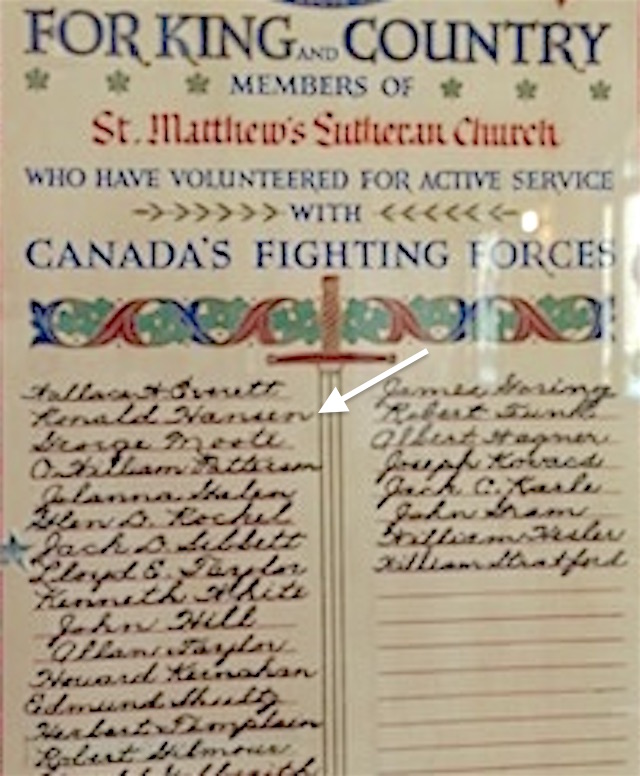 FOR KING AND COUNTRY
MEMBERS OF
St. Matthew's Lutheran Church
WHO HAVE VOLUNTEERED FOR ACTIVE SERVICE
WITH
CANADA'S FIGHTING FORCES
Wallace H Everett
Ronald Hansen
George Moote
O. William Patterson
Glen D. Rockel
Jack D. Sibbett
Lloyd E. Taylor
Kenneth White
John Hill
Allan Taylor
Howard Kernahan
Edmund Shultz
Herbert Templein
Robert Gilmour
James Goring
Robert Funk
Albert Hagner
Joseph Kovacs
Jack C. Karle
John Gram
William Hesler
William Stratford